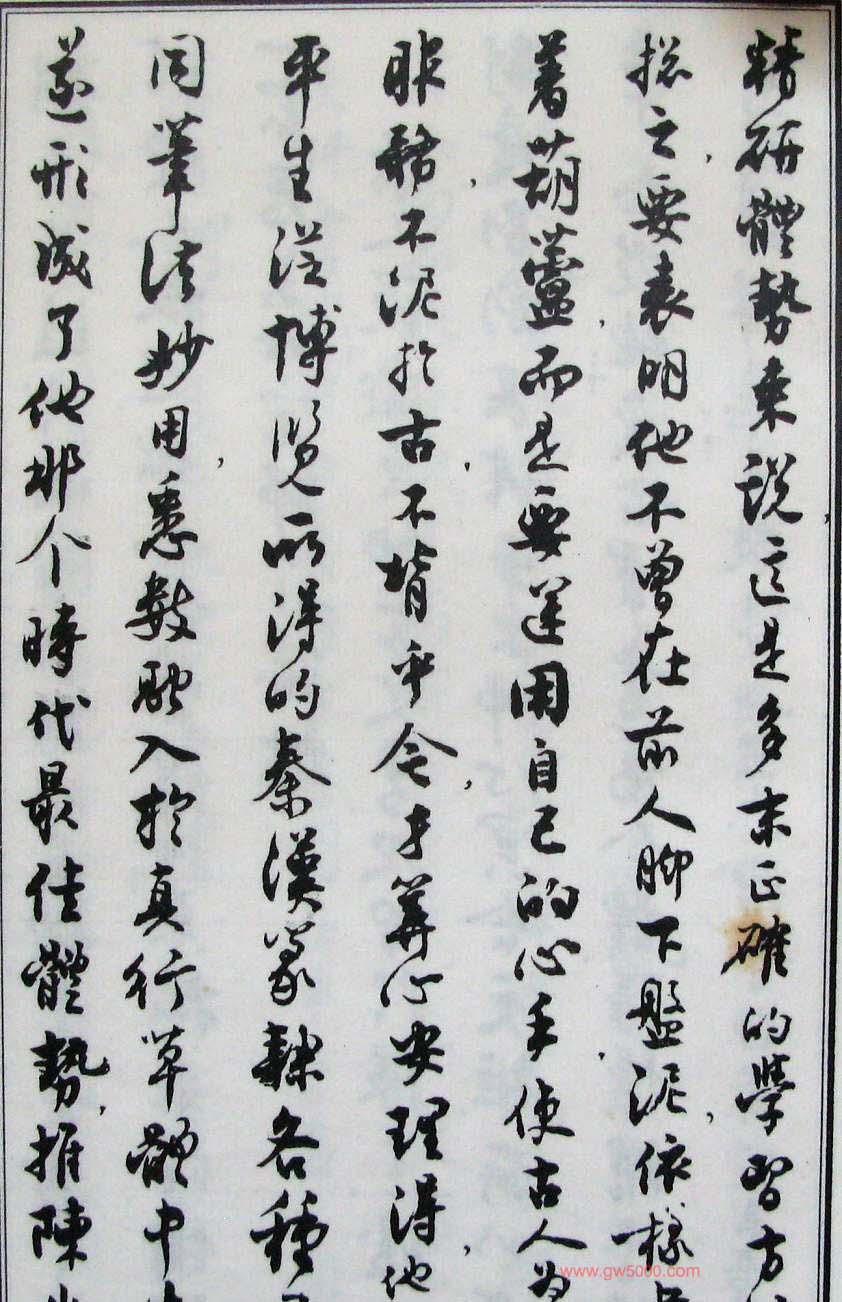 精研體勢来說，這是多末正確的學習方
掾之，要表明他不曾在前人脚下盤泥，依樣
着葫蘆，而是要運用自己的心手，使古人为
服務，不泥於古，不背乎今，才算心安理得，他
平生從博覽所得的秦漢篆隸各種
同筆法妙用，悉數融入於真行草體中
遂形成了他那个時代最佳體勢，推陳
www.gw5000.com